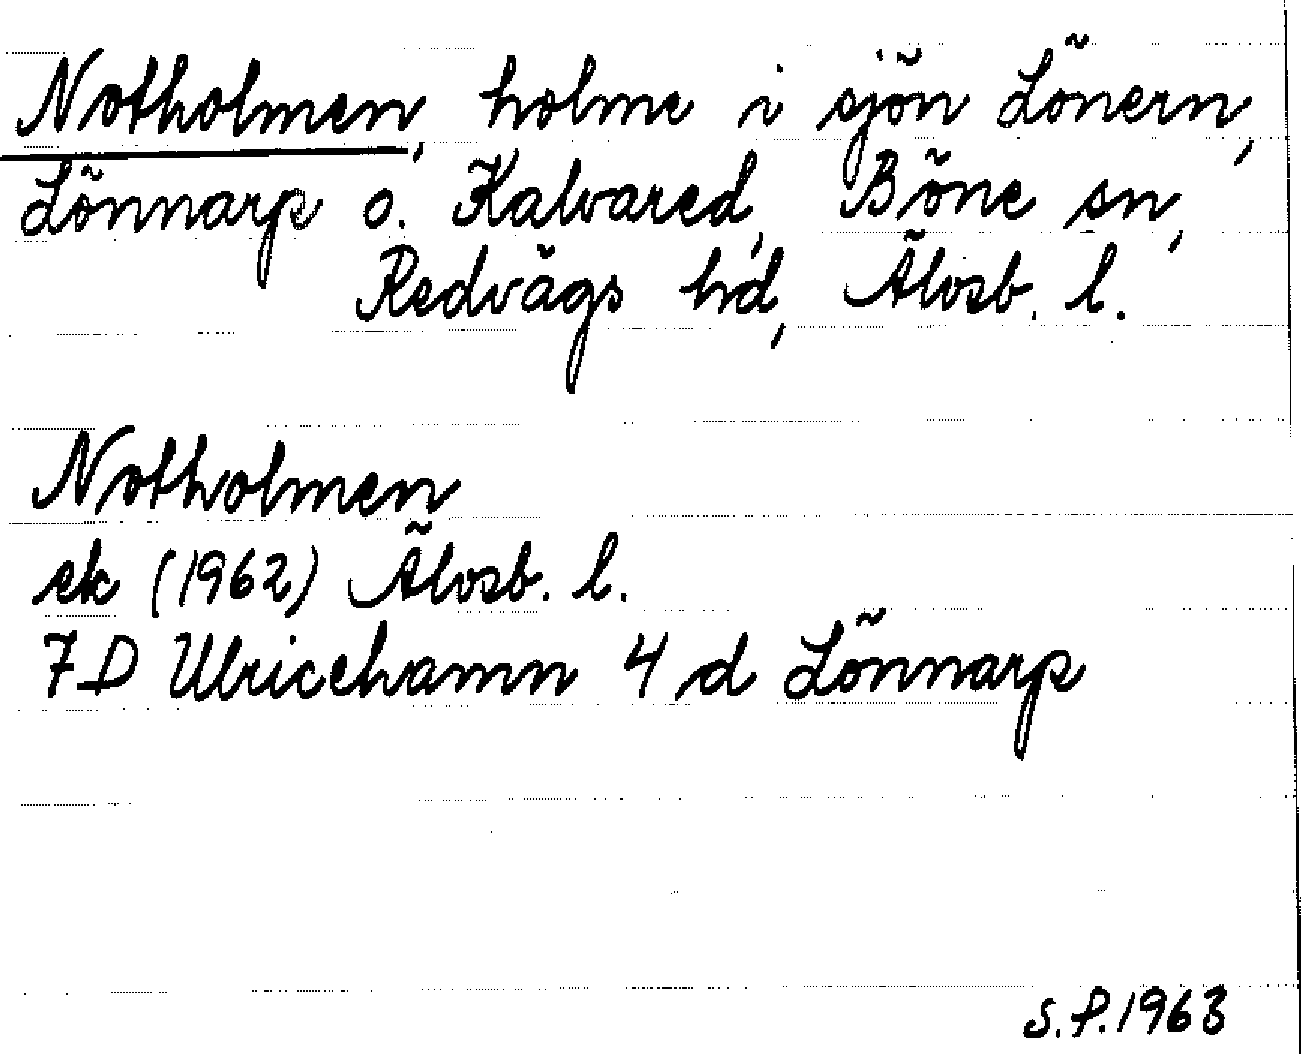 Notholmen, holme i sjön Lönern,
Lönnarp o. Kalvared, Böne sn,
Redvägs hd, Älvsb. l.
Notholmen
ek (1962) Älvsb. l.
7D Ulricehamn 4 d Lönnarp
S.P. 1963